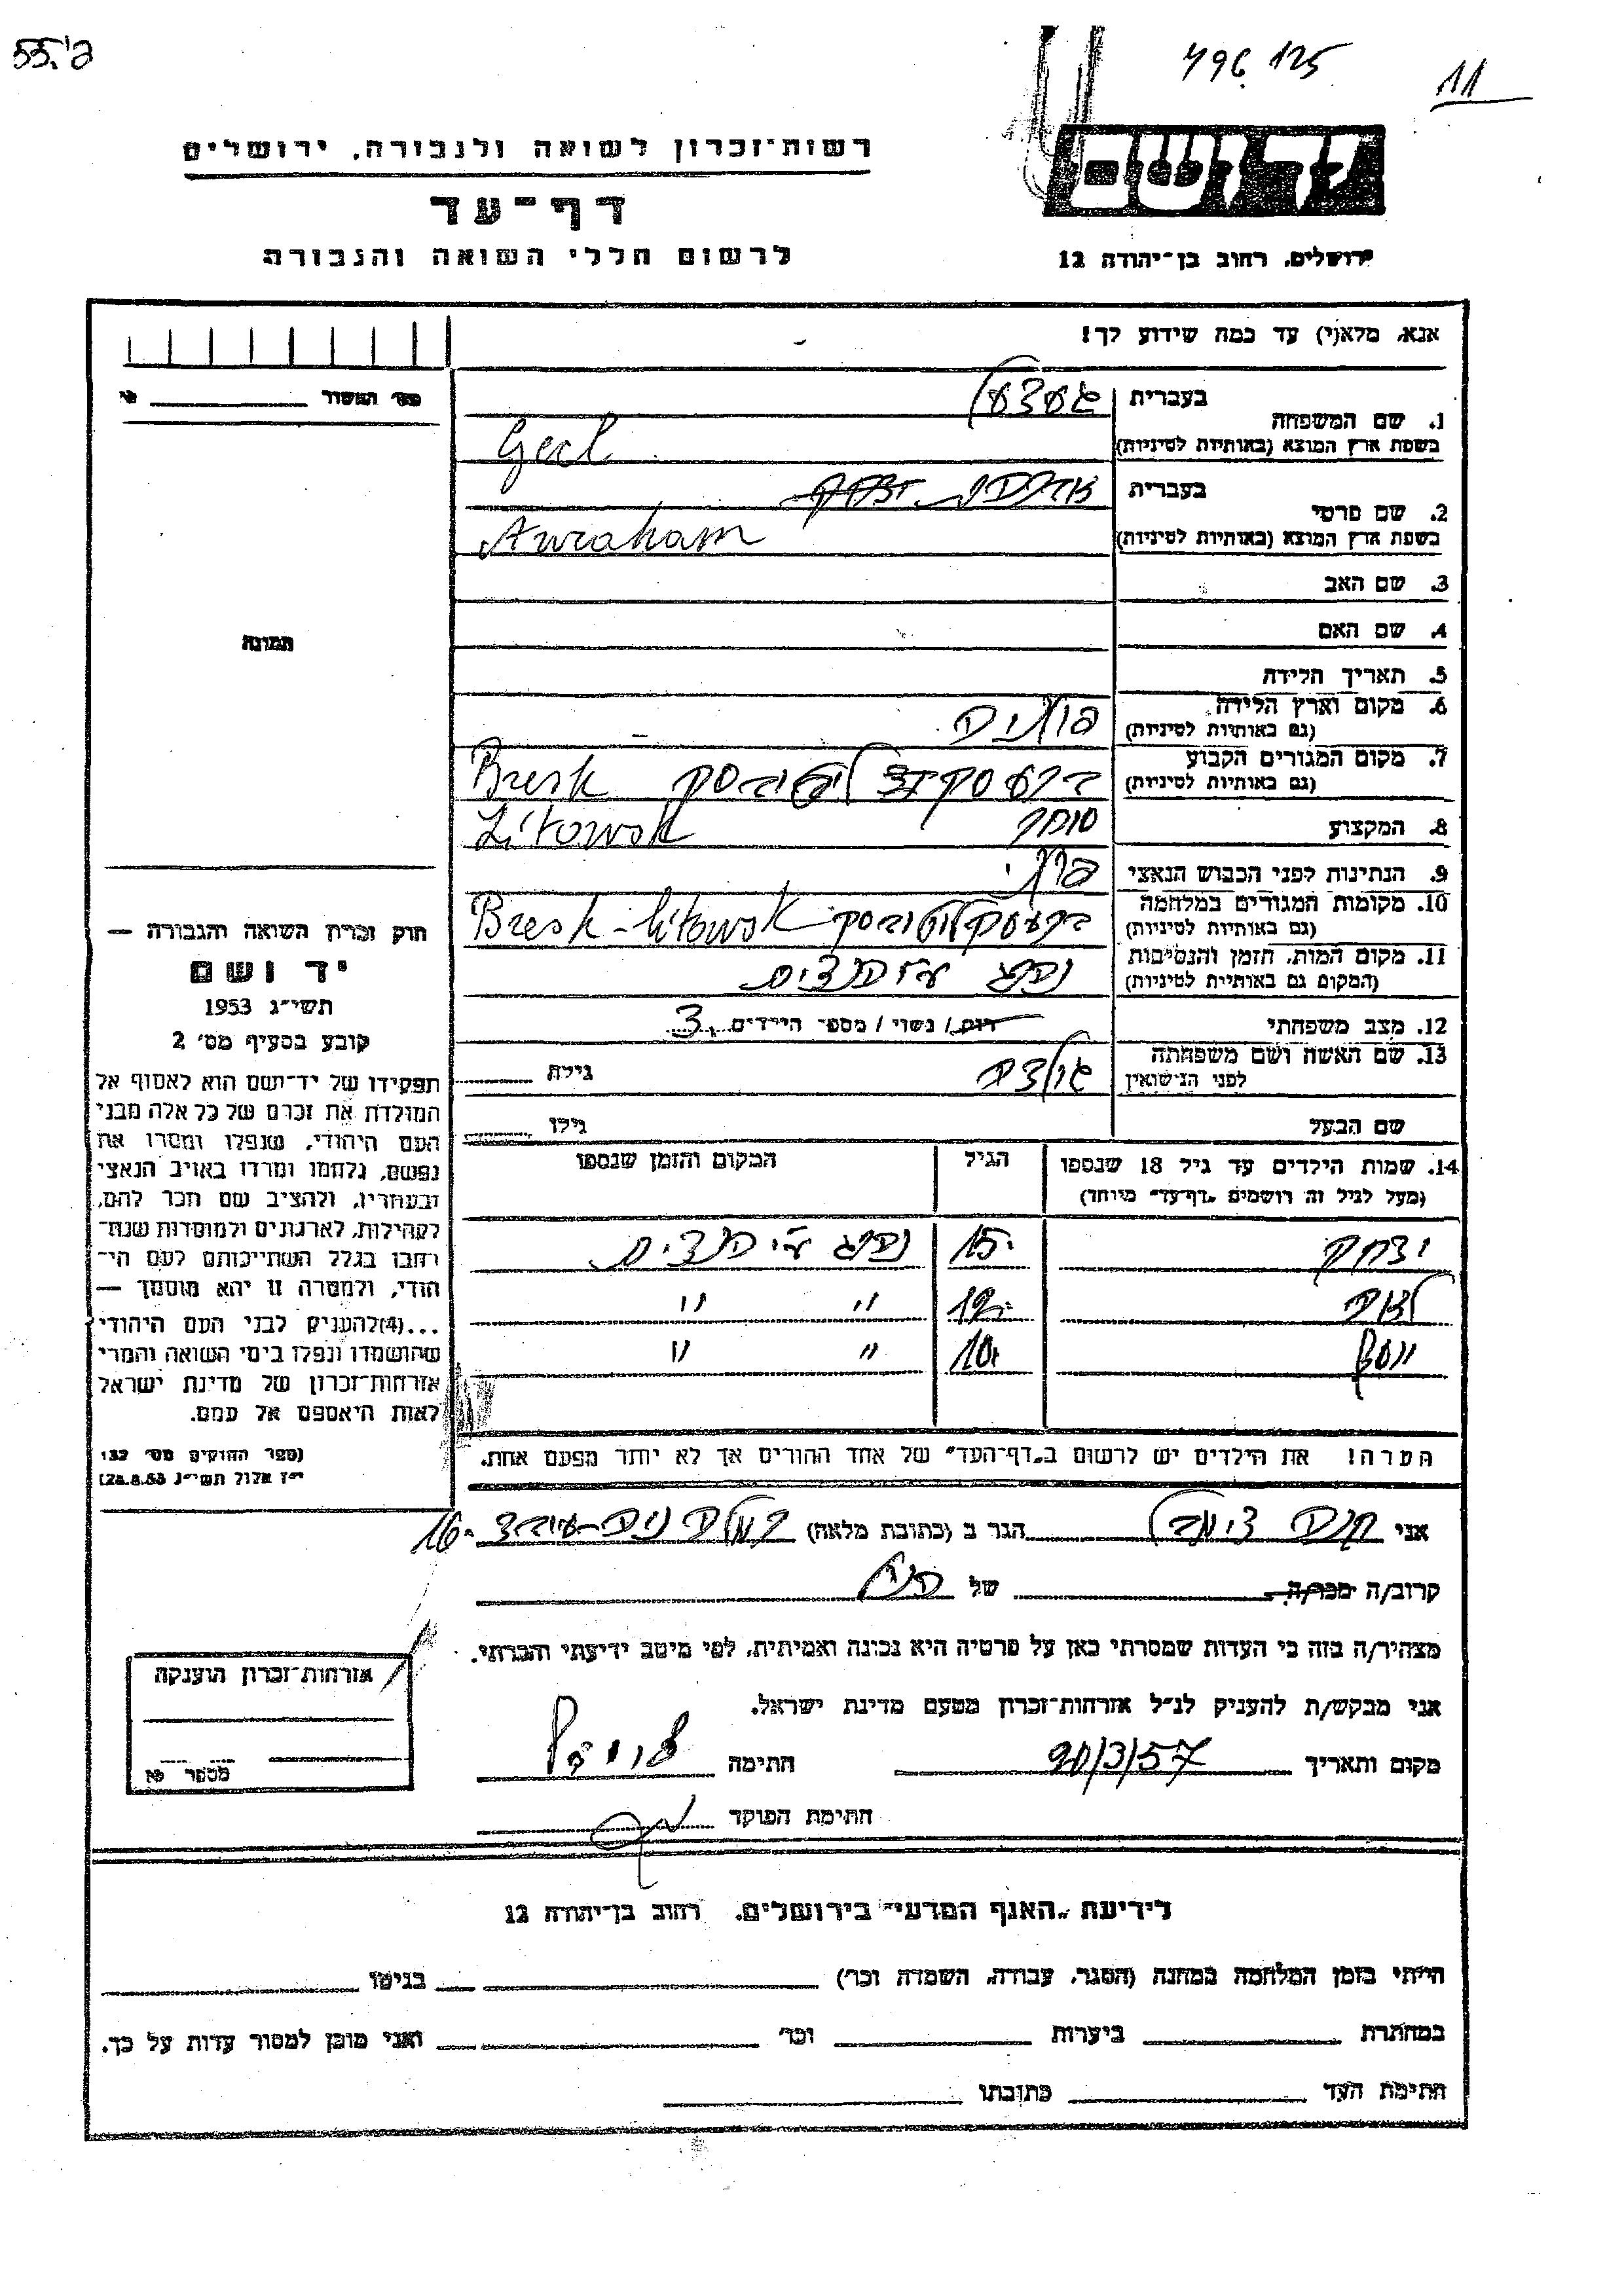 55.'פ
496 125
11
רשות־זכרון לשואה ולגבורה, ירושלים
דף־עד
לרשום חללי השואה והגבורה
יד ושם
ירושלים, רחוב בן־יהודה 12
אנא, מלא(י) עד כמה שידוע לך!
מס׳
1. שם המשפחה
בעברית
בשפת ארץ המוצא (באותיות לטיניות) Gecl
2. שם פרטי
בעברית אברהם יצחק
בשפת ארץ המוצא (באותיות לטיניות) Awraham
3. שם האב
4. שם האם
5. תאריך הלידה
6. מקום וארץ הלידה (גם באותיות לטיניות) פולניה
7. מקום המגורים הקבוע (גם באותיות לטיניות) ליטובסק Bresk
Litowsk
8. המקצוע סוחר
9. הנתינות לפני הכבוש הנאצי פולני
10. מקומות המגורים במלחמה (גם באותיות לטיניות) ליטובסק Bresk-Litowsk
11. מקום המות, הזמן והנסיבות (המקום גם באותיות לטיניות) נהרג ע״י הנצים
12. מצב משפחתי רוק / נשוי / מספר הילדים 3
13. שם האשה ושם משפחתה לפני הנישואין גולדה גילה
שם הבעל גילו
14. שמות הילדים עד גיל 18 שנספו (מעל לגיל זה רושמים "דף־עד" מיוחד) הגיל המקום והזמן שנספו
יצחק 15 נהרג ע״י הנצים
12 " "
יוסף 10 " "
הערה! את הילדים יש לרשום ב"דף־העד" של אחד ההורים אך לא יותר מפעם אחת.
תמונה
חוק זכרון השואה והגבורה —
יד ושם
תשי״ג 1953
קובע בסעיף מס׳ 2
תפקידו של יד־ושם הוא לאסוף אל
המולדת את זכרם של כל אלה מבני
העם היהודי, שנפלו ומסרו את
נפשם, נלחמו ומרדו באויב הנאצי
ובעוזריו, ולהציב שם וזכר להם,
לקהילות, לארגונים ולמוסדות שנח־
רבו בגלל השתייכותם לעם הי־
הודי, ולמטרה זו יהא מוסמך —
...(4) להעניק לבני העם היהודי
שהושמדו ונפלו בימי השואה והמרי
אזרחות־זכרון של מדינת ישראל
לאות היאספם אל עמם.
(ספר החוקים מס׳ 132
י״ז אלול תשי״ג 28.8.53)
אני חנה הגר ב (כתובת מלאה) 16
קרוב/ה מכר/ה של
מצהיר/ה בזה כי העדות שמסרתי כאן על פרטיה היא נכונה ואמיתית, לפי מיטב ידיעתי והכרתי.
אני מבקש/ת להעניק לנ״ל אזרחות־זכרון מטעם מדינת ישראל.
מקום ותאריך 20/3/57 חתימה
חתימת הפוקד
אזרחות־זכרון הוענקה
מספר
לידיעת "האגף המדעי" בירושלים, רחוב בן־יהודה 12
הייתי בזמן המלחמה במחנה (הסגר, עבודה, השמדה וכו׳) בגיטו
במחתרת ביערות וכו׳ ואני מוכן למסור עדות על כך.
חתימת העד כתובתו